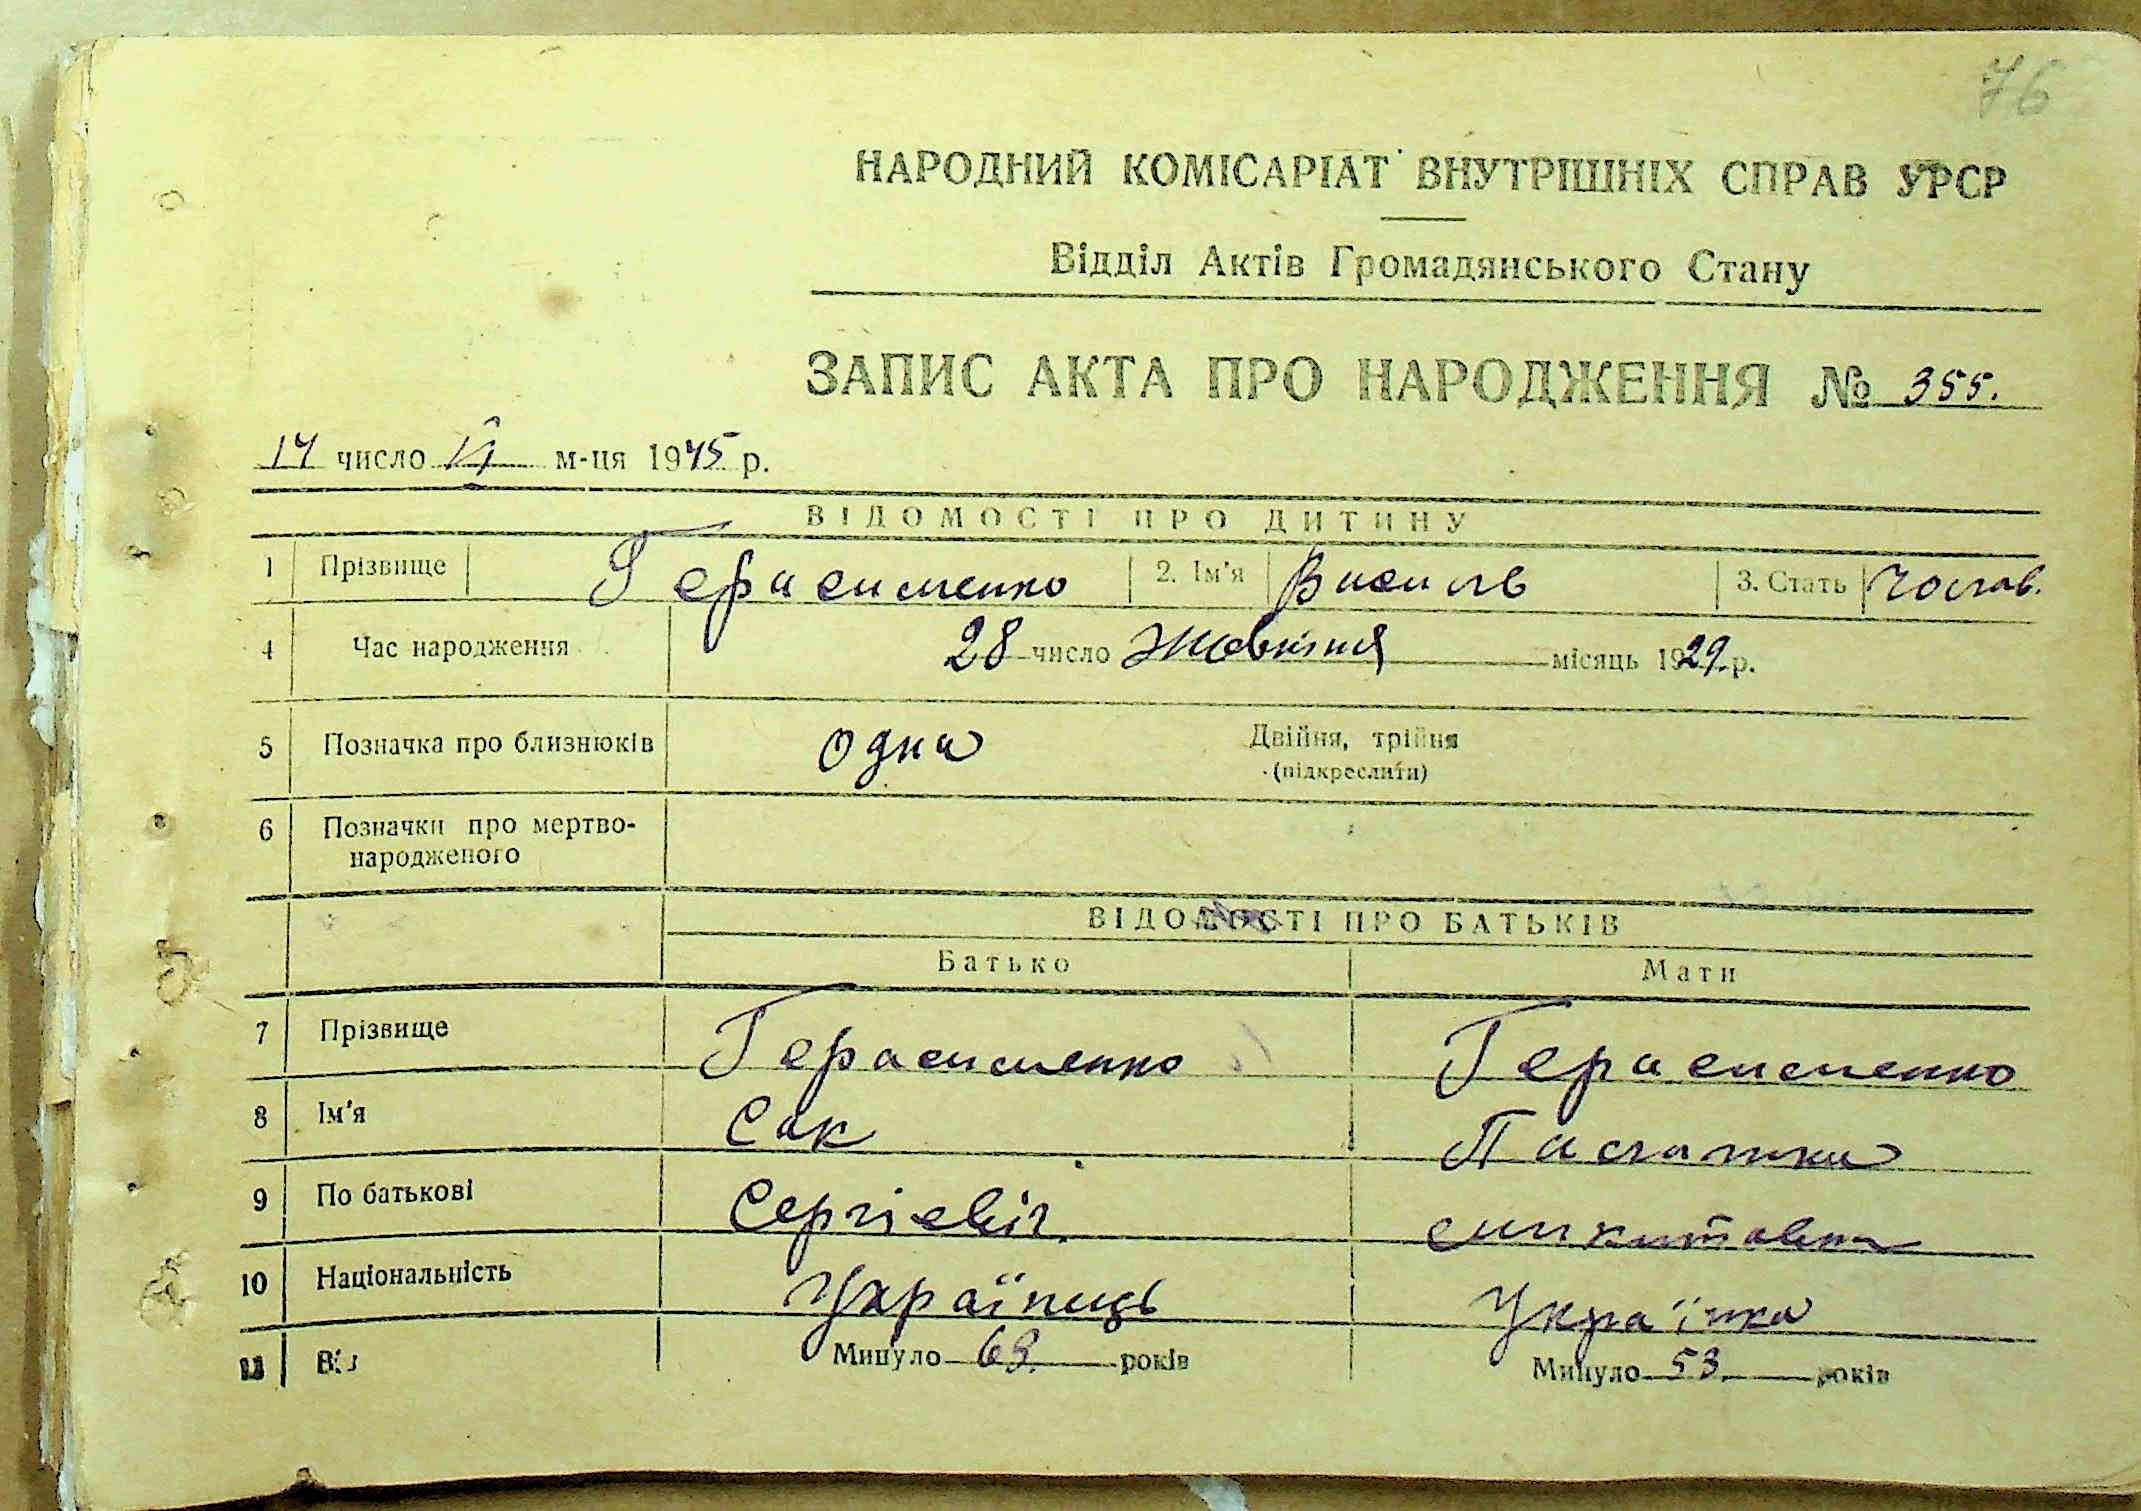 76
НАРОДНИЙ КОМІСАРІАТ ВНУТРІШНІХ СПРАВ УРСР
Відділ Актів Громадянського Стану
ЗАПИС АКТА ПРО НАРОДЖЕННЯ № 355.
число м-ця 1945 р.
ВІДОМОСТІ ПРО ДИТИНУ
1 Прізвище Герасименко 2. Ім'я Василь 3. Стать Чолов.
4 Час народження 28 число Жовтня місяць 1929 р.
5 Позначка про близнюків одна Двійня, трійня
(підкреслити)
6 Позначки про мертво-
народженого
ВІДОМОСТІ ПРО БАТЬКІВ
Батько Мати
7 Прізвище Герасименко Герасименко
8 Ім'я Сак
9 По батькові Сергієвіч Микитовна
10 Національність Українець Українка
11 Вік Минуло 69. років Минуло 53. років